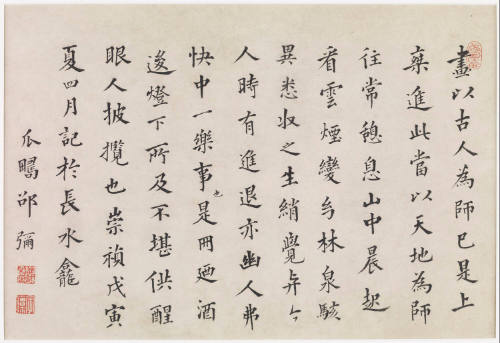 畫以古人為師已是上
乘進此當以天地為師
往常憩息山中晨起
看雲煙變幻林泉駭
異悉收之生綃覺今
人時有進退亦幽人弗
快中一樂事也是冊廼酒
逡燈下所及不堪供醒
眼人披攬也崇禎戊寅
夏四月記於長水龕
瓜疇邵彌